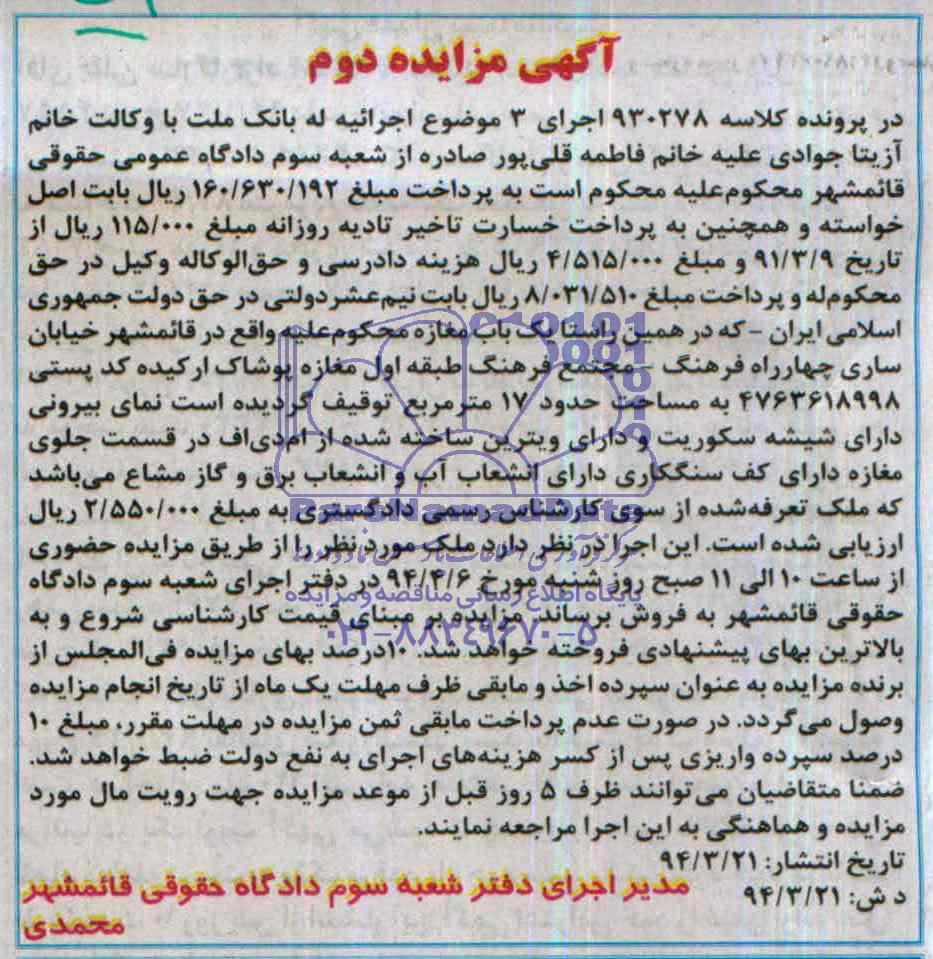 آگهی مزایده دوم
در پرونده کلاسه ۹۳۰۲۷۸ اجرای ۳ موضوع اجرائیه له بانک ملت با وکالت خانم
آزیتا جوادی علیه خانم فاطمه قلی‌پور صادره از شعبه سوم دادگاه عمومی حقوقی
قائمشهر محکوم‌علیه محکوم است به پرداخت مبلغ ۱۶۰/۶۳۰/۱۹۲ ریال بابت اصل
خواسته و همچنین به پرداخت خسارت تاخیر تادیه روزانه مبلغ ۱۱۵/۰۰۰ ریال از
تاریخ ۹۱/۳/۹ و مبلغ ۴/۵۱۵/۰۰۰ ریال هزینه دادرسی و حق‌الوکاله وکیل در حق
محکوم‌له و پرداخت مبلغ ۸/۰۳۱/۵۱۰ ریال بابت نیم‌عشر دولتی در حق دولت جمهوری
اسلامی ایران – که در همین راستا یک باب مغازه محکوم‌علیه واقع در قائمشهر خیابان
ساری چهارراه فرهنگ – مجتمع فرهنگ طبقه اول مغازه پوشاک ارکیده کد پستی
۴۷۶۳۶۱۸۹۹۸ به مساحت حدود ۱۷ مترمربع توقیف گردیده است نمای بیرونی
دارای شیشه سکوریت و دارای ویترین ساخته شده از ام‌دی‌اف در قسمت جلوی
مغازه دارای کف سنگکاری دارای انشعاب آب و انشعاب برق و گاز مشاع می‌باشد
که ملک تعرفه‌شده از سوی کارشناس رسمی دادگستری به مبلغ ۲/۵۵۰/۰۰۰ ریال
ارزیابی شده است. این اجرا در نظر دارد ملک مورد نظر را از طریق مزایده حضوری
از ساعت ۱۰ الی ۱۱ صبح روز شنبه مورخ ۹۴/۴/۶ در دفتر اجرای شعبه سوم دادگاه
حقوقی قائمشهر به فروش برساند. مزایده بر مبنای قیمت کارشناسی شروع و به
بالاترین بهای پیشنهادی فروخته خواهد شد. ۱۰درصد بهای مزایده فی‌المجلس از
برنده مزایده به عنوان سپرده اخذ و مابقی ظرف مهلت یک ماه از تاریخ انجام مزایده
وصول می‌گردد. در صورت عدم پرداخت مابقی ثمن مزایده در مهلت مقرر، مبلغ ۱۰
درصد سپرده واریزی پس از کسر هزینه‌های اجرای به نفع دولت ضبط خواهد شد.
ضمنا متقاضیان می‌توانند ظرف ۵ روز قبل از موعد مزایده جهت رویت مال مورد
مزایده و هماهنگی به این اجرا مراجعه نمایند.
تاریخ انتشار: ۹۴/۳/۲۱
د ش: ۹۴/۳/۲۱
مدیر اجرای دفتر شعبه سوم دادگاه حقوقی قائمشهر
محمدی
ParsNamadData
پایگاه اطلاع رسانی مناقصه و مزایده
۰۲۱-۸۸۳۴۹۶۷۰-۵